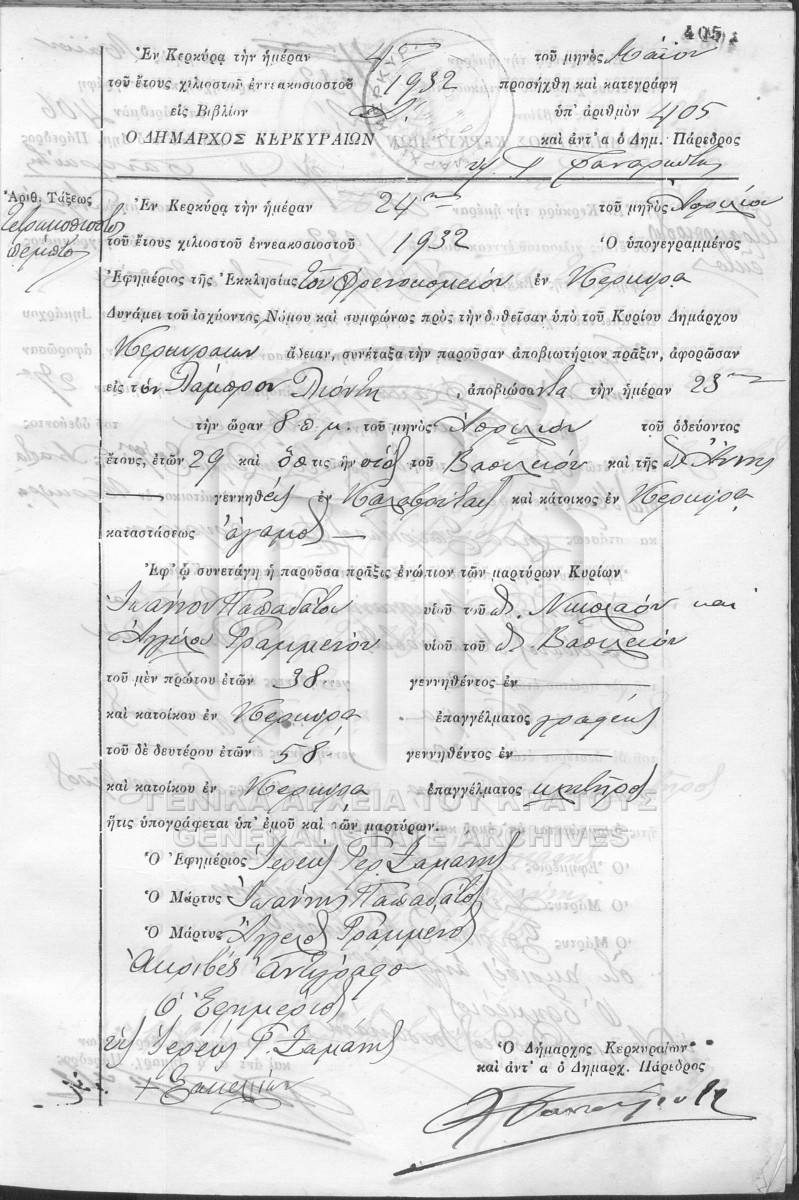 405
Ἐν Κερκύρᾳ τὴν ἡμέραν 4ην τοῦ μηνὸς Μαΐου
τοῦ ἔτους χιλιοστοῦ ἐννεακοσιοστοῦ 1932 προσήχθη καὶ κατεγράφη
εἰς Βιβλίον Α. ὑπ' ἀριθμὸν 405
Ο ΔΗΜΑΡΧΟΣ ΚΕΡΚΥΡΑΙΩΝ καὶ ἀντ' α ὁ Δημ. Πάρεδρος
Ἀριθ. Τάξεως
Τετρακοσιοστὸς
πέμπτος
Ἐν Κερκύρᾳ τὴν ἡμέραν 24ην τοῦ μηνὸς Ἀπριλίου
τοῦ ἔτους χιλιοστοῦ ἐννεακοσιοστοῦ 1932 Ὁ ὑπογεγραμμένος
Ἐφημέριος τῆς Ἐκκλησίας τοῦ Φρενοκομείου ἐν Κερκύρᾳ
Δυνάμει τοῦ ἰσχύοντος Νόμου καὶ συμφώνως πρὸς τὴν δοθεῖσαν ὑπὸ τοῦ Κυρίου Δημάρχου
Κερκυραίων ἄδειαν, συνέταξα τὴν παροῦσαν ἀποβιωτήριον πρᾶξιν, ἀφορῶσαν
εἰς τὸν Λάμπρον Λιόντη, ἀποβιώσαντα τὴν ἡμέραν 23ην
τὴν ὥραν 8 π.μ. τοῦ μηνὸς Ἀπριλίου τοῦ ὁδεύοντος
ἔτους, ἐτῶν 29 καὶ ὅστις ἦν υἱὸς τοῦ Βασιλείου καὶ τῆς Ἄννης
γεννηθεὶς ἐν Καλαβρύταις καὶ κάτοικος ἐν Κερκύρᾳ
καταστάσεως ἄγαμος
Ἐφ' ᾧ συνετάγη ἡ παροῦσα πρᾶξις ἐνώπιον τῶν μαρτύρων Κυρίων
Ἰωάννου Παπαδάτου υἱοῦ τοῦ Νικολάου καὶ
Ἀγγέλου Γραμμένου υἱοῦ τοῦ Βασιλείου
τοῦ μὲν πρώτου ἐτῶν 38 γεννηθέντος ἐν
καὶ κατοίκου ἐν Κερκύρᾳ ἐπαγγέλματος γραφεὺς
τοῦ δὲ δευτέρου ἐτῶν 58 γεννηθέντος ἐν
καὶ κατοίκου ἐν Κερκύρᾳ ἐπαγγέλματος κλητῆρος
ΓΕΝΙΚΑ ΑΡΧΕΙΑ ΤΟΥ ΚΡΑΤΟΥΣ
ἥτις ὑπογράφεται ὑπ' ἐμοῦ καὶ τῶν μαρτύρων.
GENERAL STATE ARCHIVES
Ὁ Ἐφημέριος Ἱερεὺς Γερ. Σαμάνης
Ὁ Μάρτυς Ἰωάννης Παπαδᾶτος
Ὁ Μάρτυς Ἄγγελος Γραμμένος
Ἀκριβὲς ἀντίγραφο
Ὁ Ἐφημέριος
Ἱερεὺς Γ. Σαμάνης
Ὁ Δήμαρχος Κερκυραίων
καὶ ἀντ' α ὁ Δημαρχ. Πάρεδρος